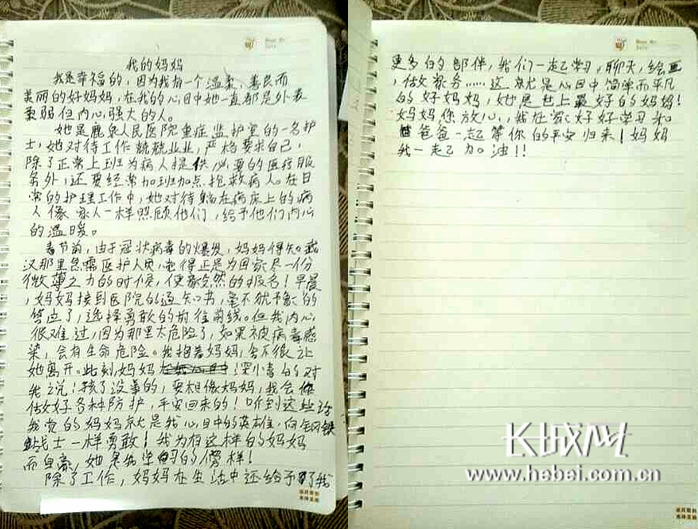 我的妈妈
我是幸福的，因为我有一个温柔，善良而
美丽的好妈妈，在我的心目中她一直都是外表
柔弱但内心强大的人。
她是鹿泉人民医院重症监护室的一名护
士，她对待工作兢兢业业，严格要求自己，
除了正常上班为病人提供必要的医疗服
务外，还要经常加班加点抢救病人。在日
常的护理工作中，她对待躺在病床上的病
人像家人一样照顾他们，给予他们内心
的温暖。
春节前，由于冠状病毒的爆发，妈妈得知武
汉那里急需医护人员，觉得正是为国家尽一份
微薄之力的时候，便毅然的报名！早晨
，妈妈接到医院的通知书，毫不犹予的
答应了，选择勇敢的前往前线。但我内心
很难过，因为那里太危险了，如果被病毒感
染，会有生命危险。我抱着妈妈，舍不得让
她离开。此刻妈妈
我说：孩子没事的，要相信妈妈，我会
做好各种防护，平安回来的！听到这些话
我觉的妈妈就是我心目中的英雄，向钢铁
战士一样勇敢！我为有这样的妈妈
而自豪，她是我学习的傍样！
除了工作，妈妈在生活中还给予了我
更多的陪伴，我们一起学习，聊天，绘画
，做家务……这就是心目中简单而平凡
的好妈妈，她是世上最好的妈妈！
妈妈你放心，我在家好好学习和
爸爸一起等你的平安归来！妈妈
我一起加油！！
长城网
www.hebei.com.cn